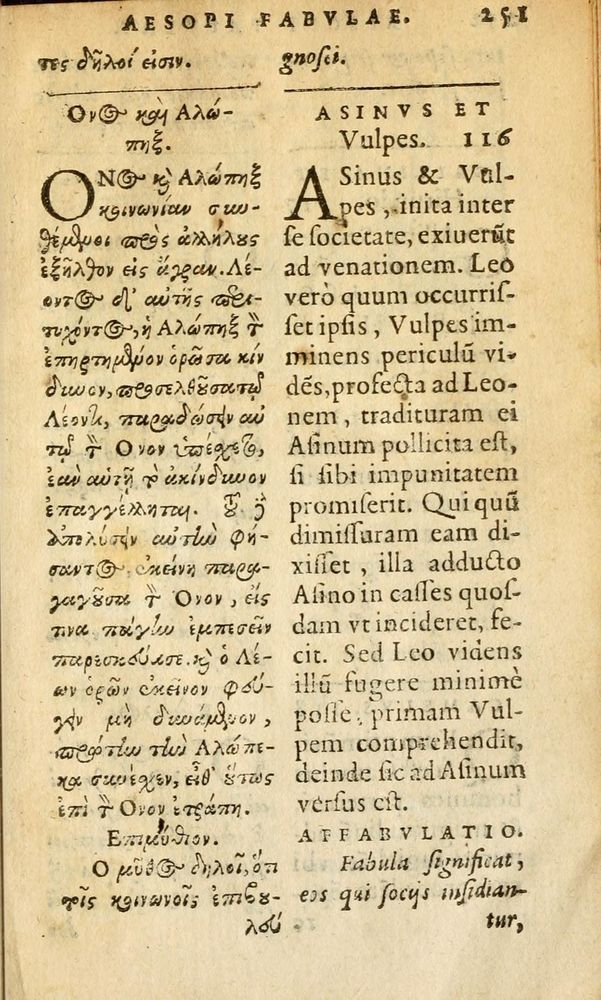 AESOPI FABVLAE. 251
τες δῆλοί εἰσιν.
Ὄνος καὶ Αλώ-
πηξ.
ΟΝος καὶ Αλώπηξ
κοινωνίαν συν-
θέμενοι πρὸς ἀλλήλους
ἐξῆλθον εἰς ἄγραν. Λέ-
οντος δ' αὐτῆς πρι-
τυχόντος, ἡ Αλώπηξ τὸν
ἐπηρτημένον ὁρῶσα κίν
δυνον, προσελθοῦσα τῷ
Λέοντι, παραδώσειν αυ
τῷ τὸν Ονον ὑπέχετο,
ἐὰν αὐτῇ τὸ ἀκίνδυνον
ἐπαγγέλληται. Τοῦ δὲ
ἀπολύσειν αὐτὴν φή-
σαντος, ἐκείνη παρα-
γαγοῦσα τὸν Ὄνον, εἰς
τινα πάγην ἐμπεσεῖν
παρεσκεύασε. καὶ ὁ Λέ-
ων ὁρῶν ἐκεῖνον φεύ-
γειν μὴ δυνάμενον,
πρώτην τὴν Αλώπε-
κα συνέχεν, εἶθ' οὕτως
ἐπὶ τὸν Ονον ἐτράπη.
Επιμύθιον.
Ο μῦθος δηλοῖ, ὅτι
τοῖς κοινωνοῖς ἐπιβου-
λεύ
gnosci.
ASINVS ET
Vulpes. 116
ASinus & Vul-
pes, inita inter
se societate, exiuerũt
ad venationem. Leo
verò quum occurris-
set ipsis, Vulpes im-
minens periculũ vi-
dẽs, profecta ad Leo-
nem, tradituram ei
Asinum pollicita est,
si sibi impunitatem
promiserit. Qui quũ
dimissuram eam di-
xisset, illa adducto
Asino in casses quos-
dam vt incideret, fe-
cit. Sed Leo videns
illũ fugere minimè
posse, primam Vul-
pem comprehendit,
deinde sic ad Asinum
versus est.
AFFABVLATIO.
Fabula significat,
eos qui socijs insidian-
tur,